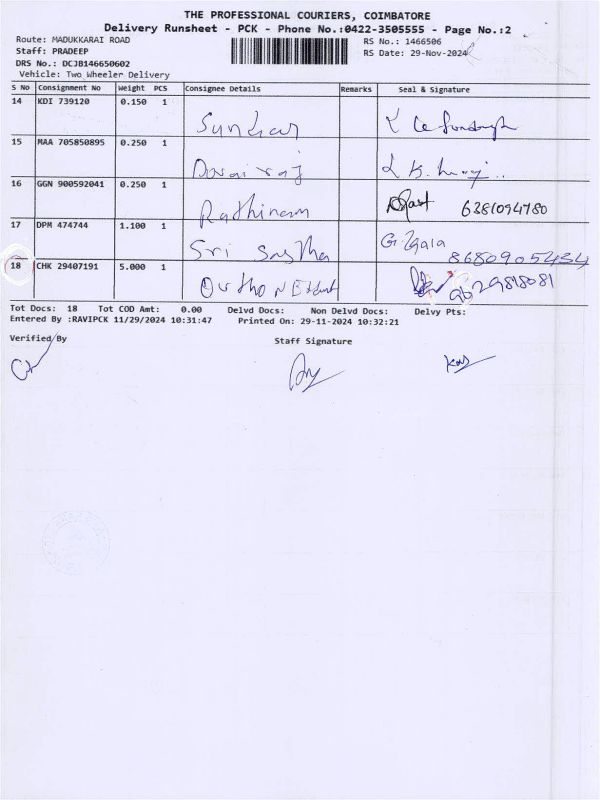 THE PROFESSIONAL COURIERS, COIMBATORE
Delivery Runsheet - PCK - Phone No.:0422-3505555 - Page No.:2
Route: MADUKKARAI ROAD
RS No.: 1466506
Staff: PRADEEP
RS Date: 29-Nov-2024
DRS No.: DCJB146650602
Vehicle: Two Wheeler Delivery
S No Consignment No Weight PCS Consignee Details Remarks Seal & Signature
14 KDI 739120 0.150 1
Sundar
15 MAA 705850895 0.250 1
Dorairaj
16 GGN 900592041 0.250 1
Rathinam 6381094780
17 DPM 474744 1.100 1
Sri Sastha 8680905434
18 CHK 29407191 5.000 1
9629818081
Tot Docs: 18 Tot COD Amt: 0.00 Delvd Docs: Non Delvd Docs: Delvy Pts:
Entered By :RAVIPCK 11/29/2024 10:31:47 Printed On: 29-11-2024 10:32:21
Verified By
Staff Signature